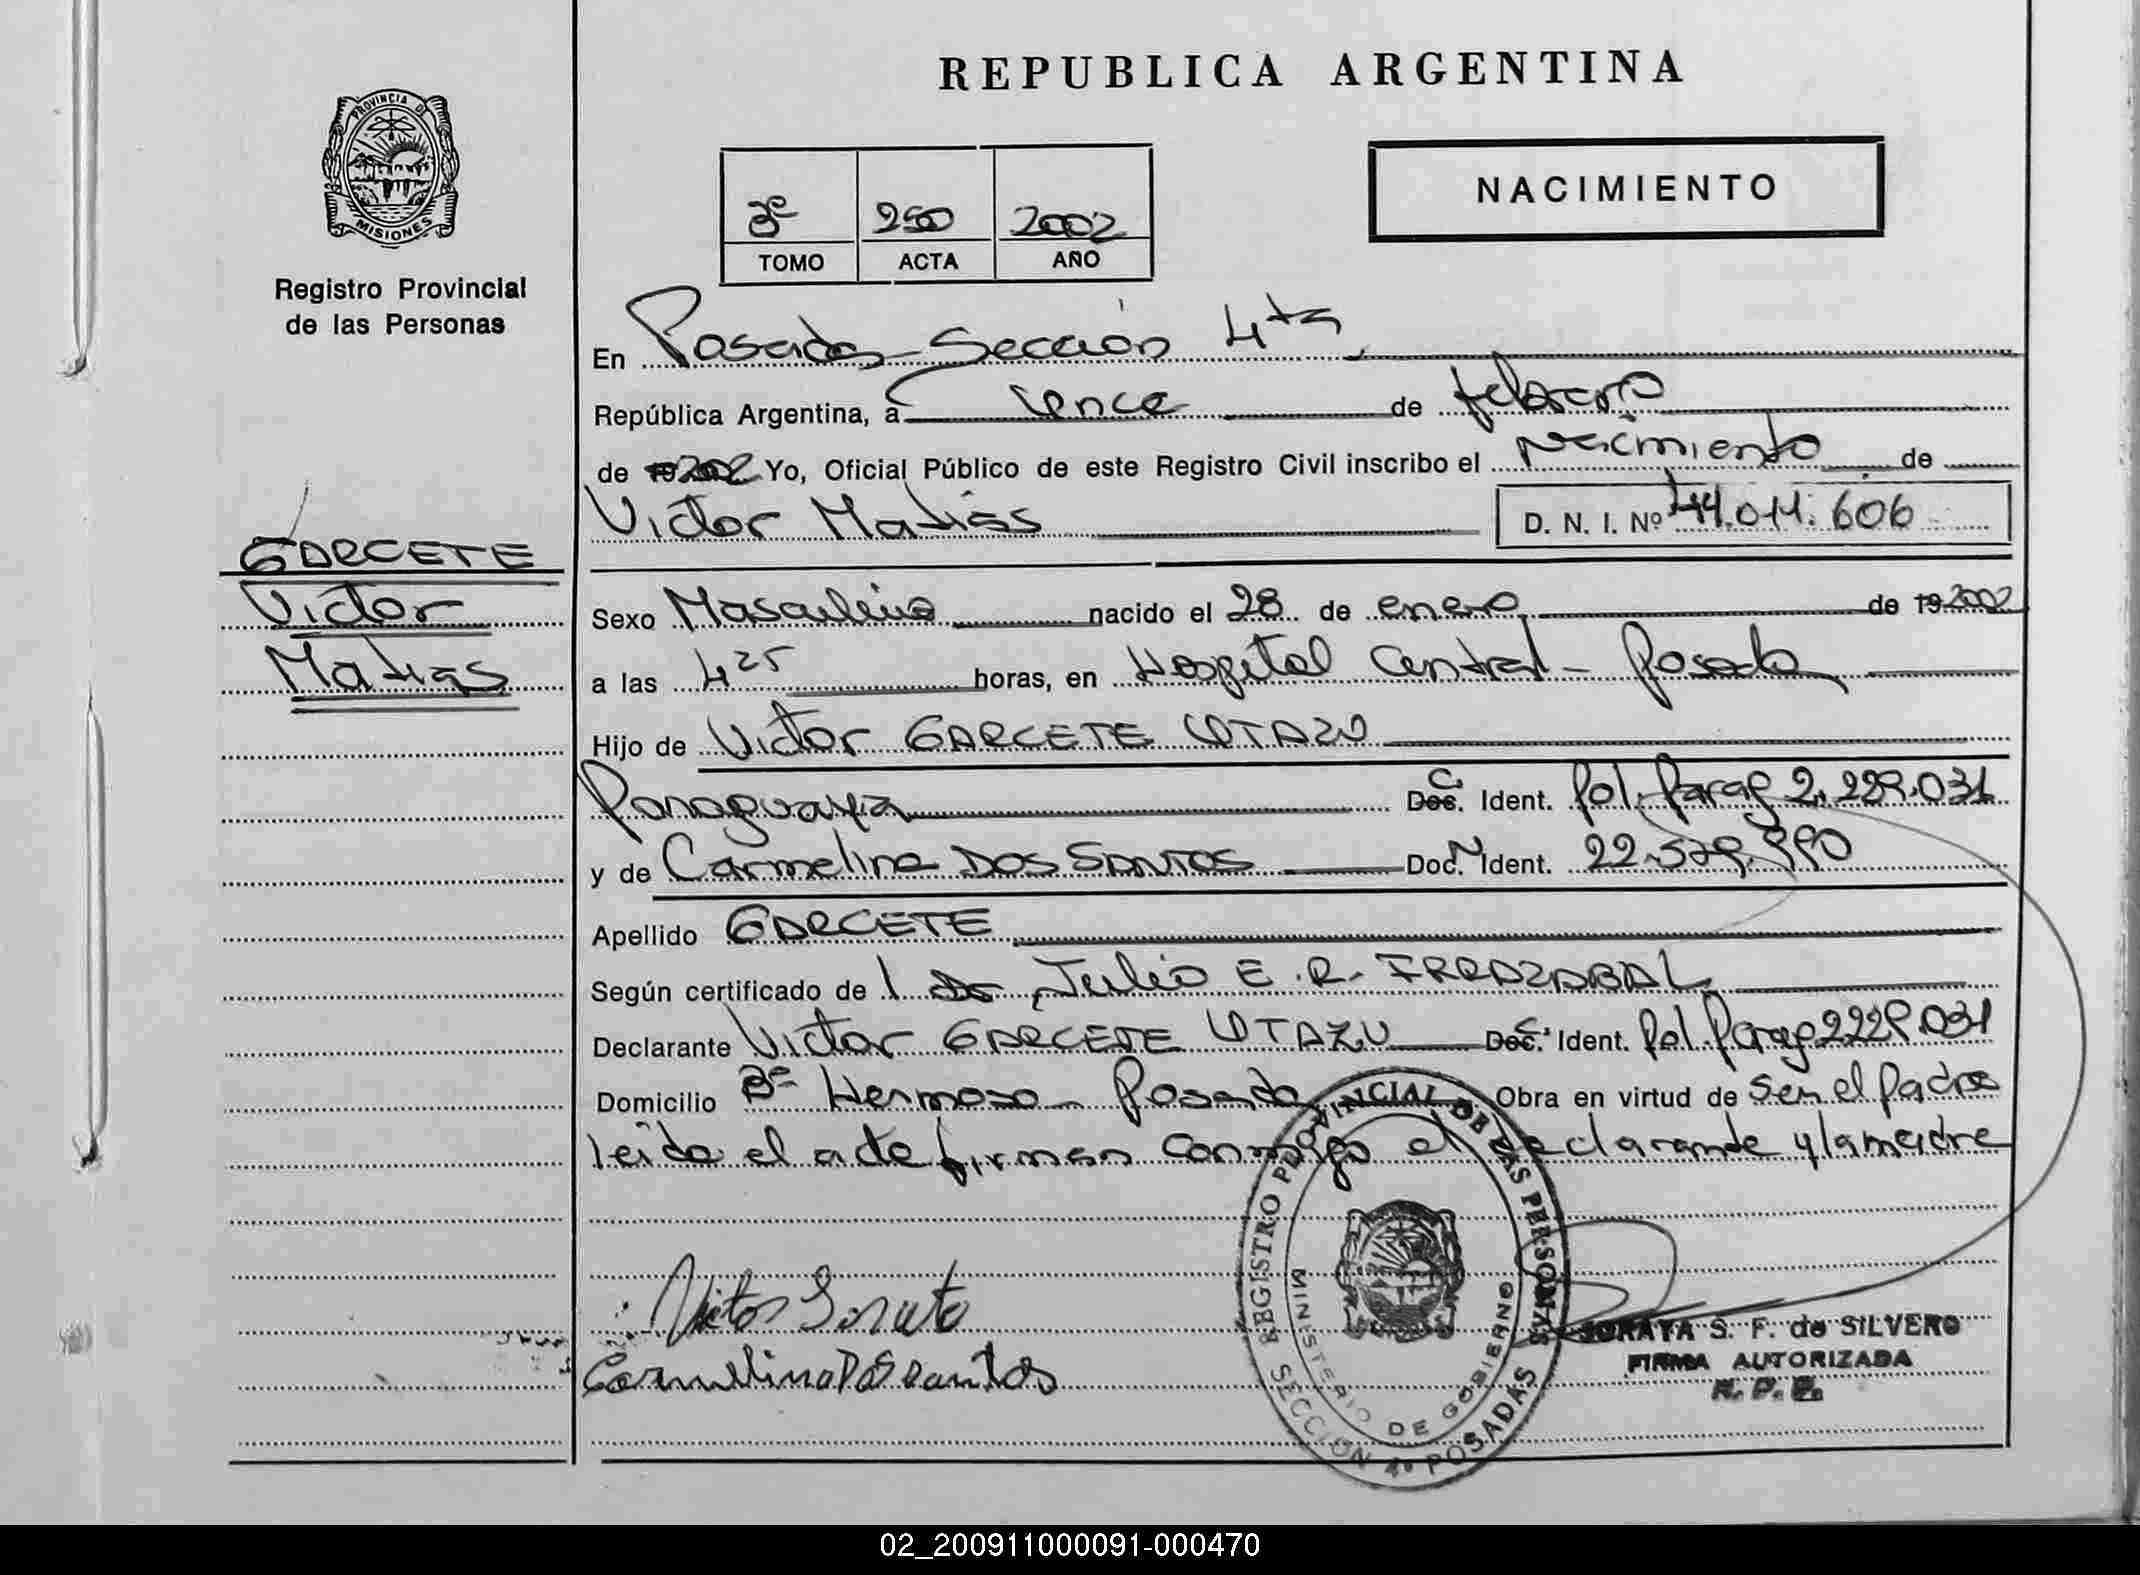 REPUBLICA ARGENTINA
PROVINCIA DE
MISIONES
Registro Provincial
de las Personas
NACIMIENTO
3º 250 2002
TOMO ACTA AÑO
En Posadas - Sección 4ta
República Argentina, a once de febrero
de 2002 Yo, Oficial Público de este Registro Civil inscribo el nacimiento de
Victor Matias D. N. I. Nº 44.011.606
GARCETE
Victor
Matias
Sexo Masculino nacido el 28 de enero de 19 2002
a las 4 25 horas, en Hospital Central - Posadas
Hijo de Victor GARCETE OTAZU
Paraguaya Doc. C Ident. Pol. Parag 2.229.031
y de Carmelina DOS SANTOS Doc. N Ident. 22.579.990
Apellido GARCETE
Según certificado de l Dr Julio E. R. IRRAZABAL
Declarante Victor GARCETE OTAZU Doc. C. Ident. Pol. Parag 2229.031
Domicilio Bº Hermoso - Posadas Obra en virtud de ser el padre
leida el acta firman conmigo el declarante y la madre
REGISTRO PROVINCIAL DE LAS PERSONAS
MINISTERIO DE GOBIERNO
SECCION 4º POSADAS
Victor
Carmelina Dos Santos
SORAYA S. F. de SILVERO
FIRMA AUTORIZADA
R. P. P.
02_200911000091-000470